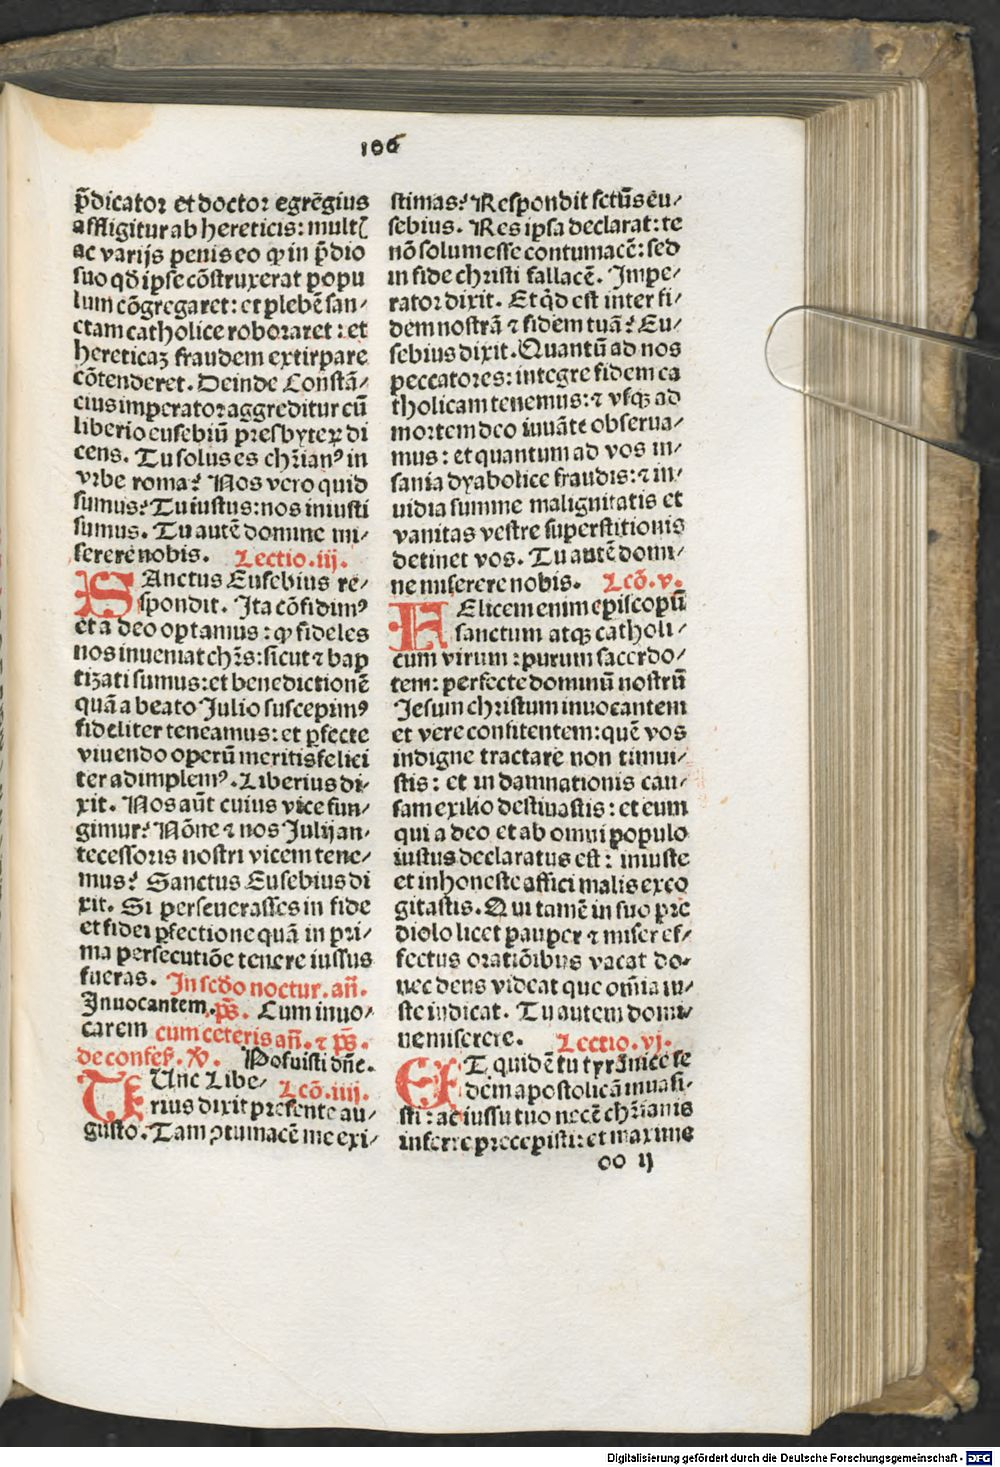 106
p̄dicator et doctor egrēgius
affligitur ab hereticis: multꝭ
ac varijs penis eo ꝙ in p̄dio
suo qđ ipse cōstruxerat popu
lum cōgregaret: et plebē san⸗
ctam catholice roboraret: et
hereticaꝫ fraudem extirpare
cōtenderet. Deinde Constā⸗
cius imperator aggreditur cū
liberio eusebiū presbyteꝝ di
cens. Tu solus es chrianꝰ in
vrbe roma? Nos vero quid
sumus? Tu iustus: nos iniusti
sumus. Tu autē domine mi⸗
serere nobis. Lectio.iij.
SAnctus Eusebius re⸗
spondit. Ita cōfidimꝰ
et a deo optamus: ꝙ fideles
nos inueniat chr̄s: sicut ⁊ bap
tizati sumus: et benedictionē
quā a beato Julio suscepimꝰ
fideliter teneamus: et ꝑfecte
viuendo operū meritis felici
ter adimplemꝰ. Liberius di⸗
xit. Nos aūt cuius vice fun⸗
gimur? Nōne ⁊ nos Julij an⸗
tecessoris nostri vicem tene⸗
mus? Sanctus Eusebius di
xit. Si perseuerasses in fide
et fidei ꝑfectione quā in pri⸗
ma persecutiōe tenere iussus
fueras. In scđo noctur. añ.
Inuocantem. p̄s. Cum inuo⸗
carem cum ceteris añ. ⁊ p̄s.
de confes. ꝟ. Posuisti dñe.
TUnc Libe⸗ Lcō.iiij.
rius dixit presente au⸗
gusto. Tam ꝯtumacē me exi⸗
stimas? Respondit sctūs eu⸗
sebius. Res ipsa declarat: te
nō solum esse contumacē: sed
in fide christi fallacē. Impe⸗
rator dixit. Et qd̄ est inter fi⸗
dem nostrā ⁊ fidem tuā? Eu⸗
sebius dixit. Quantū ad nos
peccatores: integre fidem ca
tholicam tenemus: ⁊ vsqꝫ ad
mortem deo iuuāte obserua⸗
mus: et quantum ad vos in⸗
sania dyabolice fraudis: ⁊ in⸗
uidia summe malignitatis et
vanitas vestre superstitionis
detinet vos. Tu autē domi⸗
ne miserere nobis. Lcō.v.
FElicem enim episcopū
sanctum atqꝫ catholi⸗
cum virum: purum sacerdo⸗
tem: perfecte dominū nostrū
Jesum christum inuocantem
et vere confitentem: quē vos
indigne tractare non timui⸗
stis: et in damnationis cau⸗
sam exilio destinastis: et eum
qui a deo et ab omni populo
iustus declaratus est: iniuste
et inhoneste affici malis exco
gitastis. Qui tamē in suo pre
diolo licet pauper ⁊ miser ef⸗
fectus oratiōibus vacat do⸗
nec deus videat que om̄ia iu⸗
ste iudicat. Tu autem domi⸗
ne miserere. Lectio.vj.
ET quidē tu tyrānice se
dem apostolicā inuasi⸗
sti: ac iussu tuo necē chr̄ianis
inferre precepisti: et maxime
oo ij
Digitalisierung gefördert durch die Deutsche Forschungsgemeinschaft - DFG